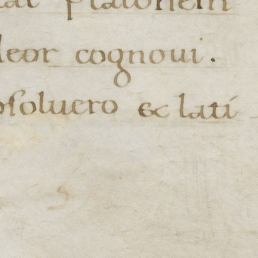 platonem
deor cognoui.
bsoluero & lati